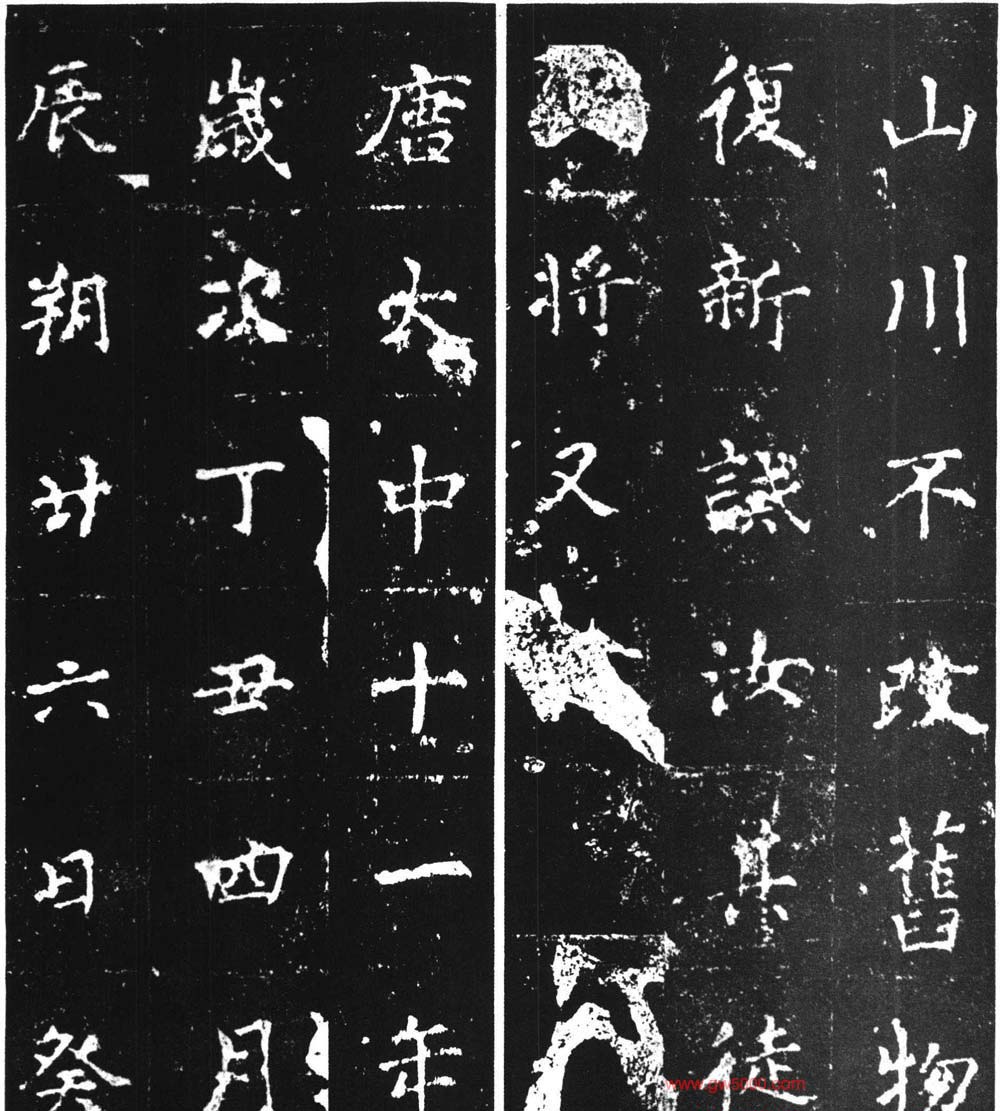 山川不改舊物
復新汝其徒
將又
唐大中十一年
歲次丁丑四月
辰朔廿六日癸
www.gw5000.com